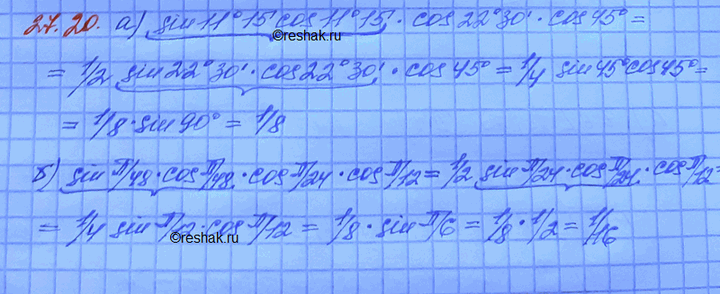 27.20. а) sin 11°15' cos 11°15' · cos 22°30' · cos 45° =
©reshak.ru
= 1/2 sin 22°30' · cos 22°30' · cos 45° = 1/4 sin 45° cos 45° =
= 1/8 · sin 90° = 1/8
б) sin π/48 · cos π/48 · cos π/24 · cos π/12 = 1/2 sin π/24 · cos π/24 · cos π/12 =
= 1/4 sin π/12 · cos π/12 = 1/8 · sin π/6 = 1/8 · 1/2 = 1/16
©reshak.ru